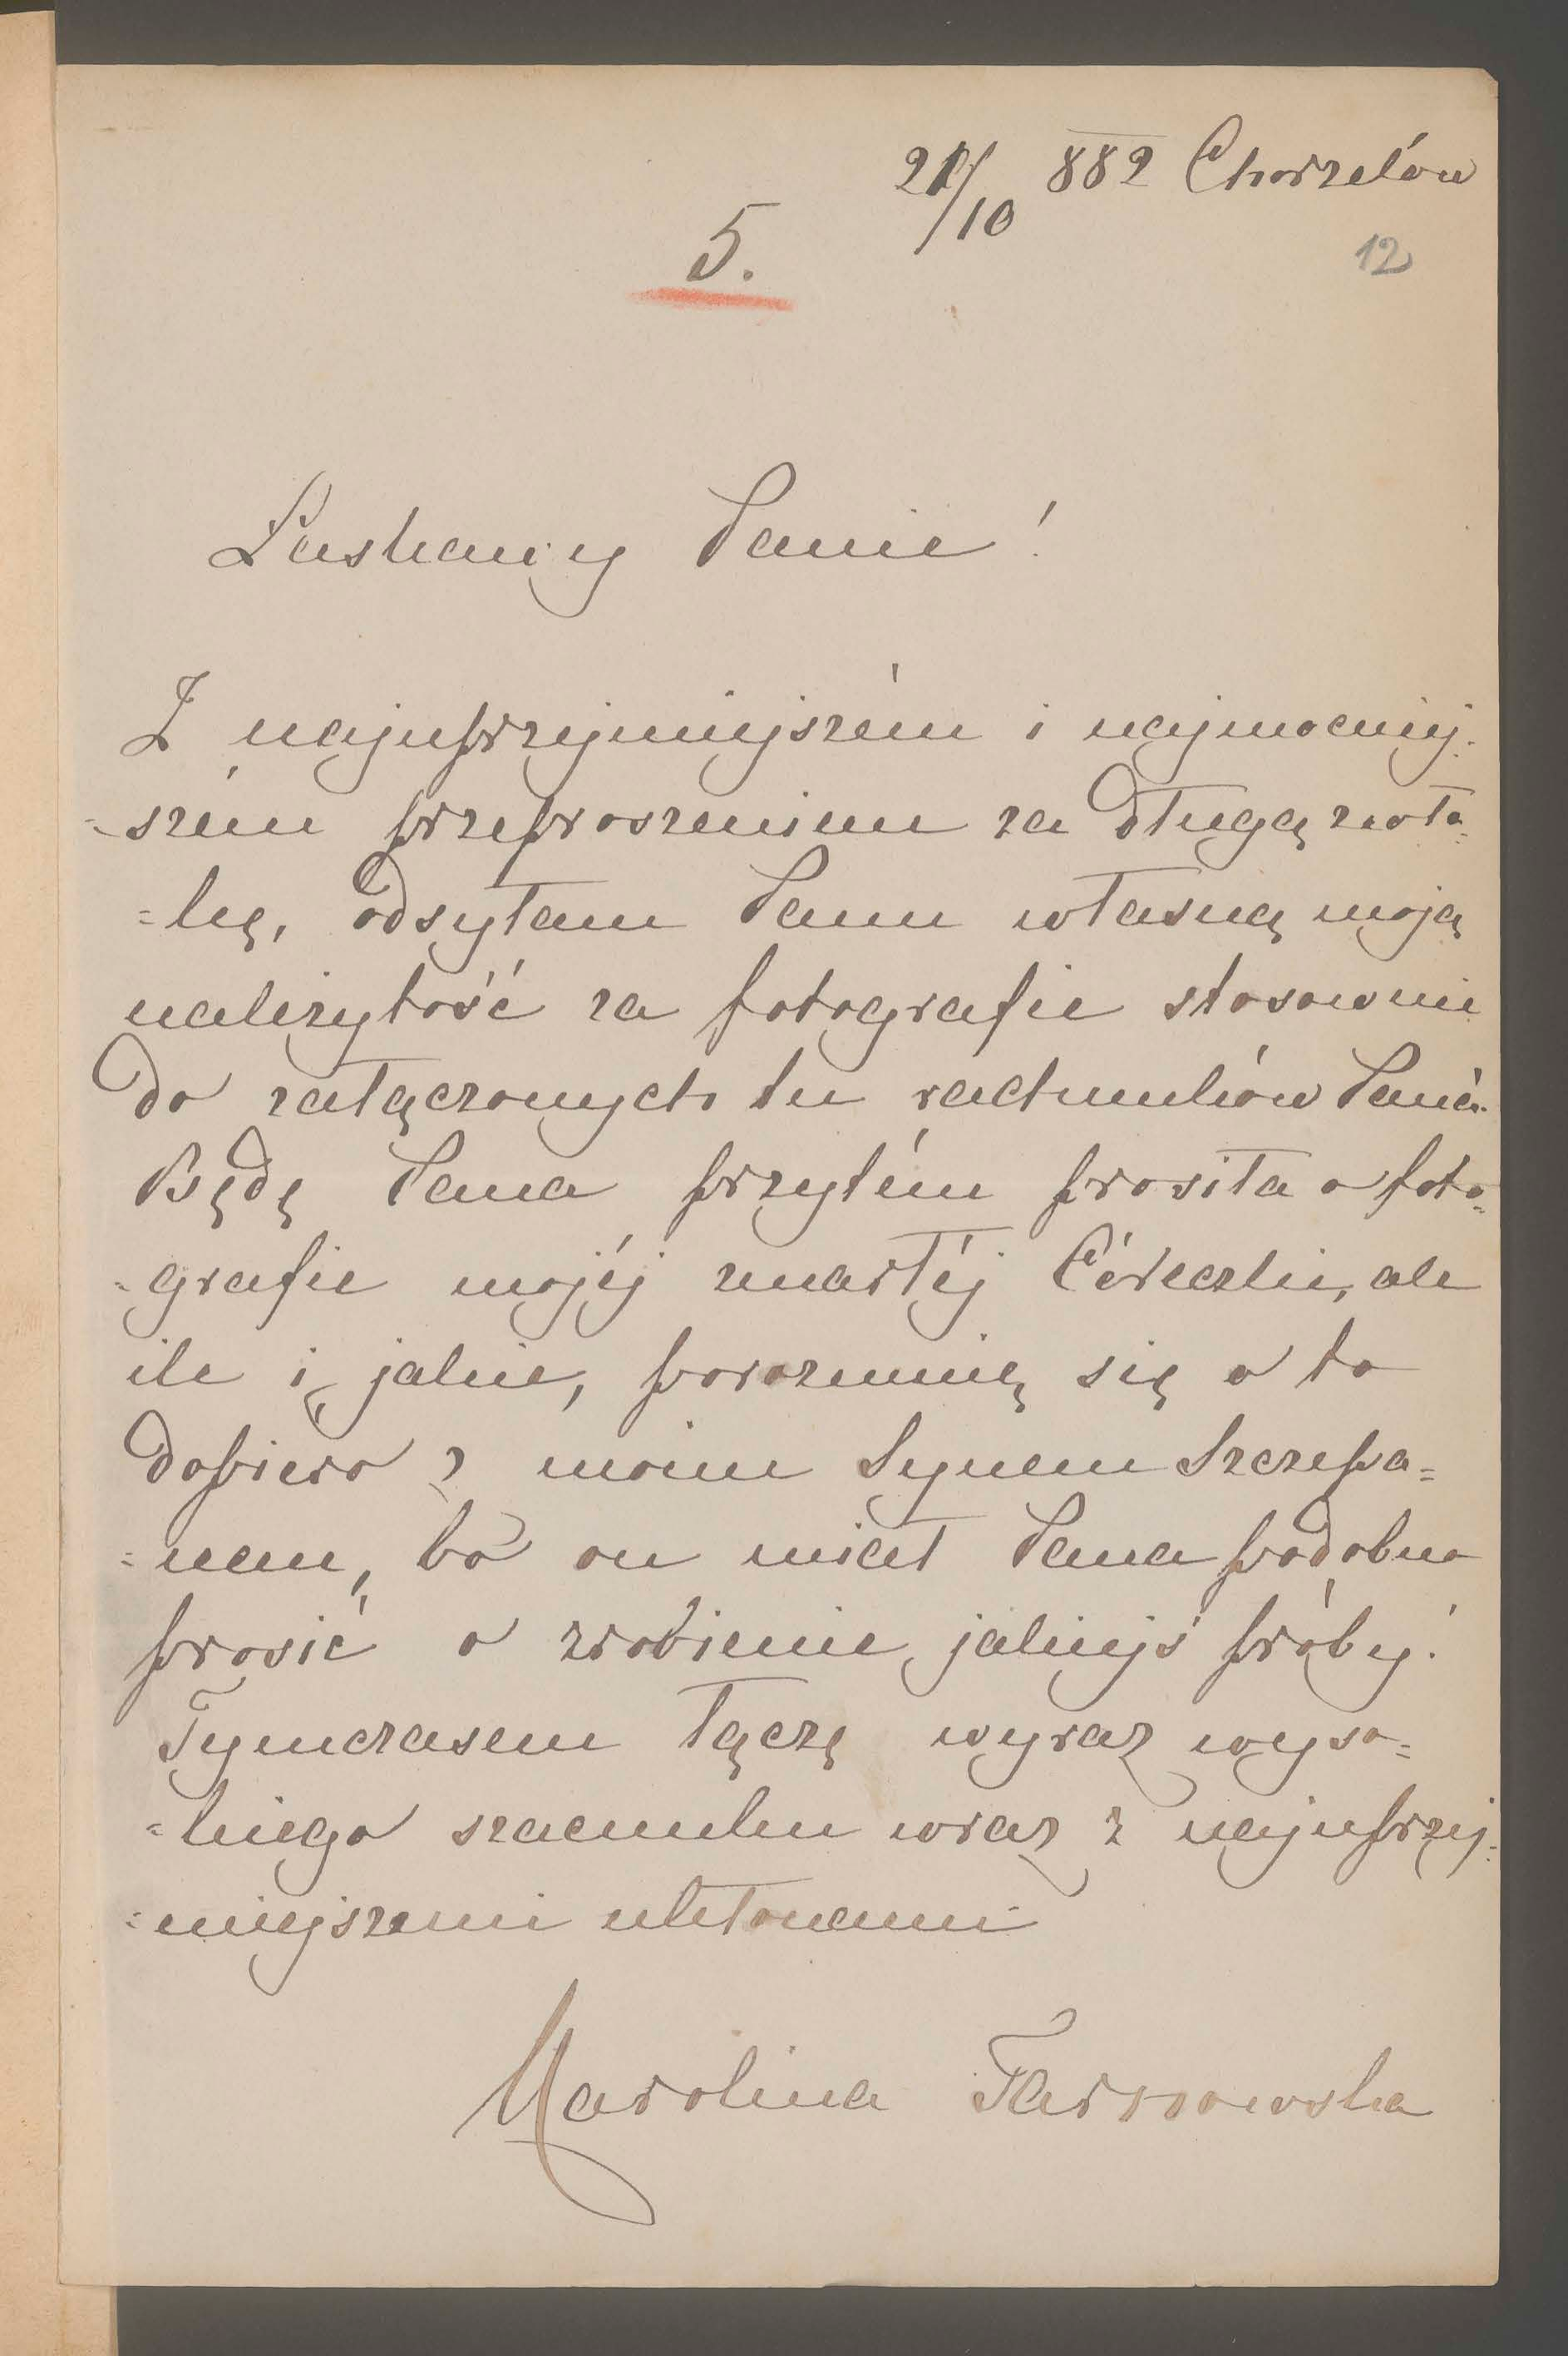 21/10 882 Chorzelów
5.
12
Łaskawy Panie!
Z najuprzejmiejszém i najmocniej-
=szém przeproszeniem za długą zwło=
=kę, odsyłam Panu własną moją
należytość za fotografie stosownie
do załączonych tu rachunków Pana.
Będę Pana przytém prosiła o foto=
=grafie mojéj zmarłéj Córeczki, ale
ile i jakie, porozumię się o to
dopiero z moim Synem Szczepa=
=nem, bo on miał Pana podobno
prosić o zrobienie jakiejś próby.
Tymczasem łączę wyraz wyso=
=kiego szacunku wraz z najuprzej=
=miejszemi ukłonami
Karolina Tarnowska